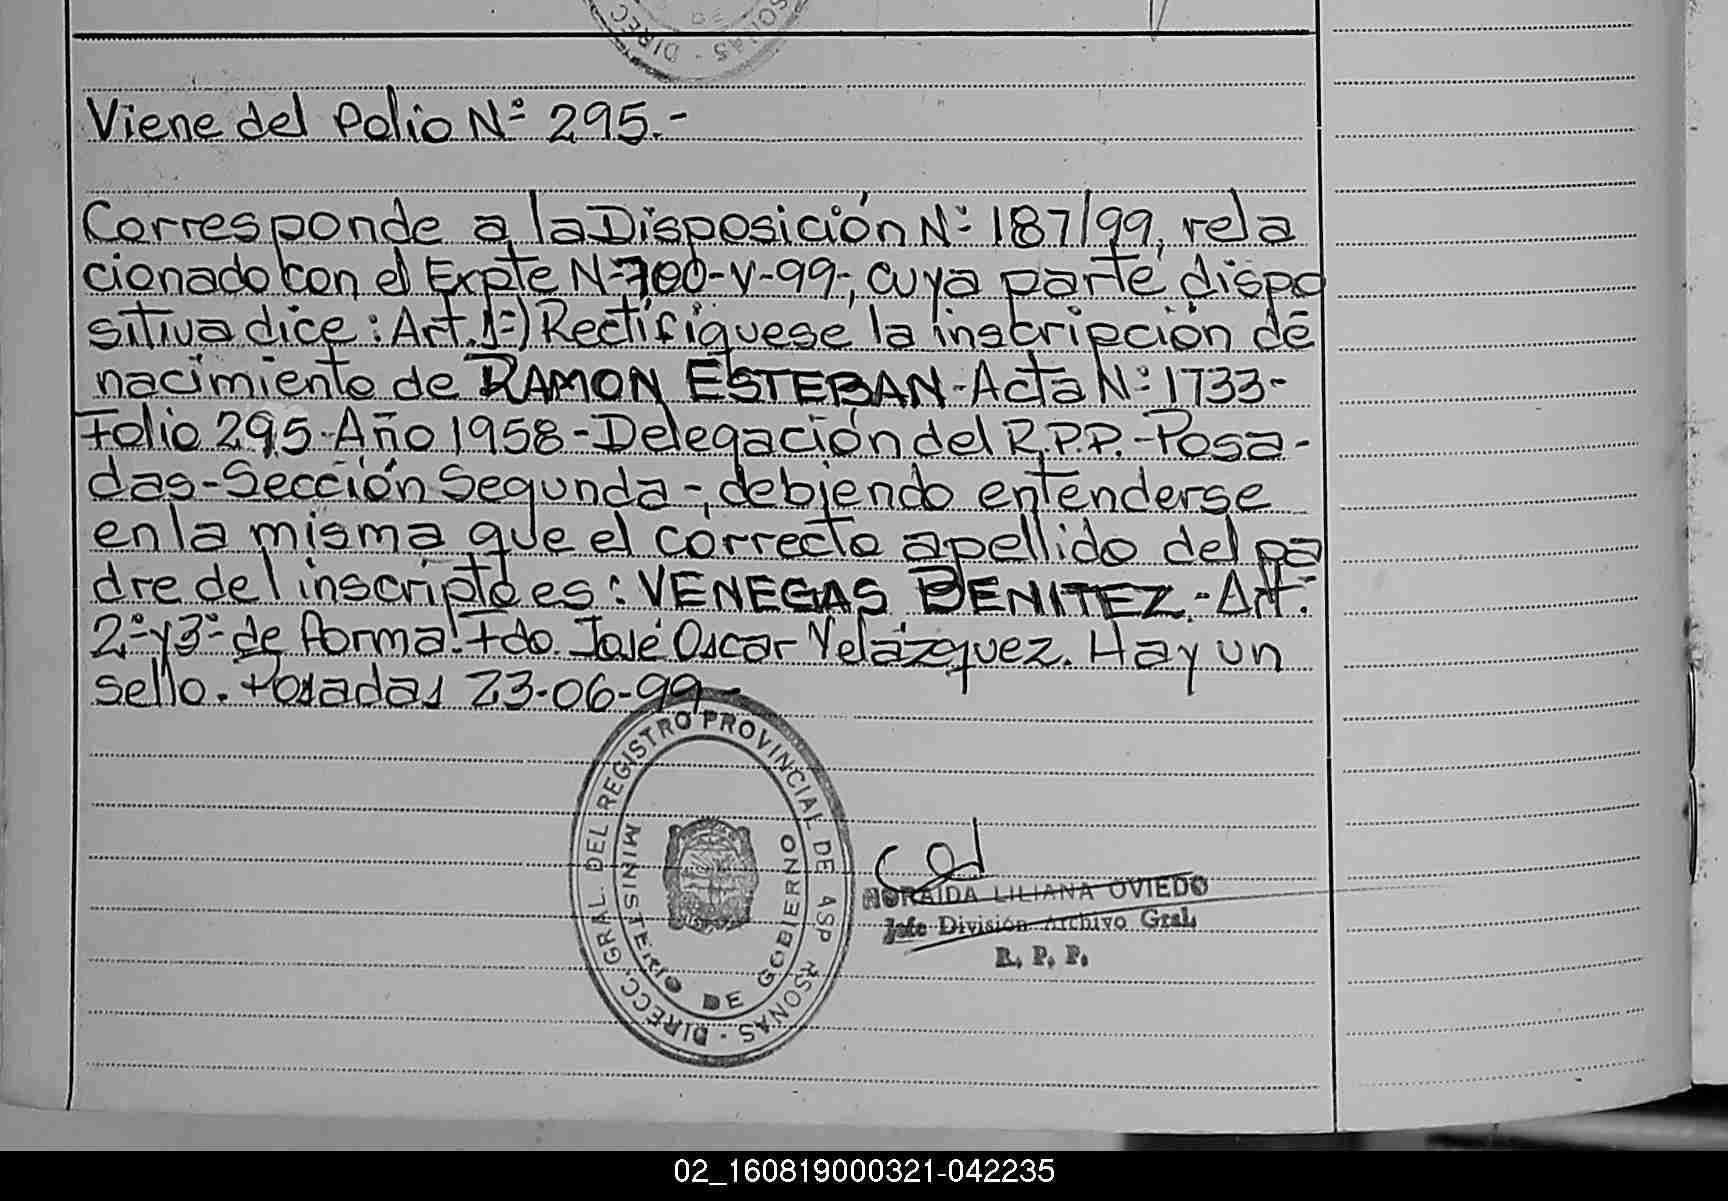 Viene del folio Nº 295.-
Corresponde a la Disposición Nº 187/99, rela
cionado con el Expte Nº 700-V-99-, cuya parte dispo
sitiva dice: Art. 1º) Rectifíquese la inscripción de
nacimiento de RAMON ESTEBAN-Acta Nº 1733-
Folio 295-Año 1958-Delegación del R.P.P.-Posa-
das-Sección Segunda-, debiendo entenderse
en la misma que el correcto apellido del pa
dre del inscripto es: VENEGAS BENITEZ.-Art.
2º y 3º de forma. Fdo. José Oscar Velázquez. Hay un
sello. Posadas 23-06-99-
DIRECC. GRAL. DEL REGISTRO PROVINCIAL DE PERSONAS
MINISTERIO DE GOBIERNO
NORAIDA LILIANA OVIEDO
Jefe División Archivo Gral.
R. P. P.
02_160819000321-042235